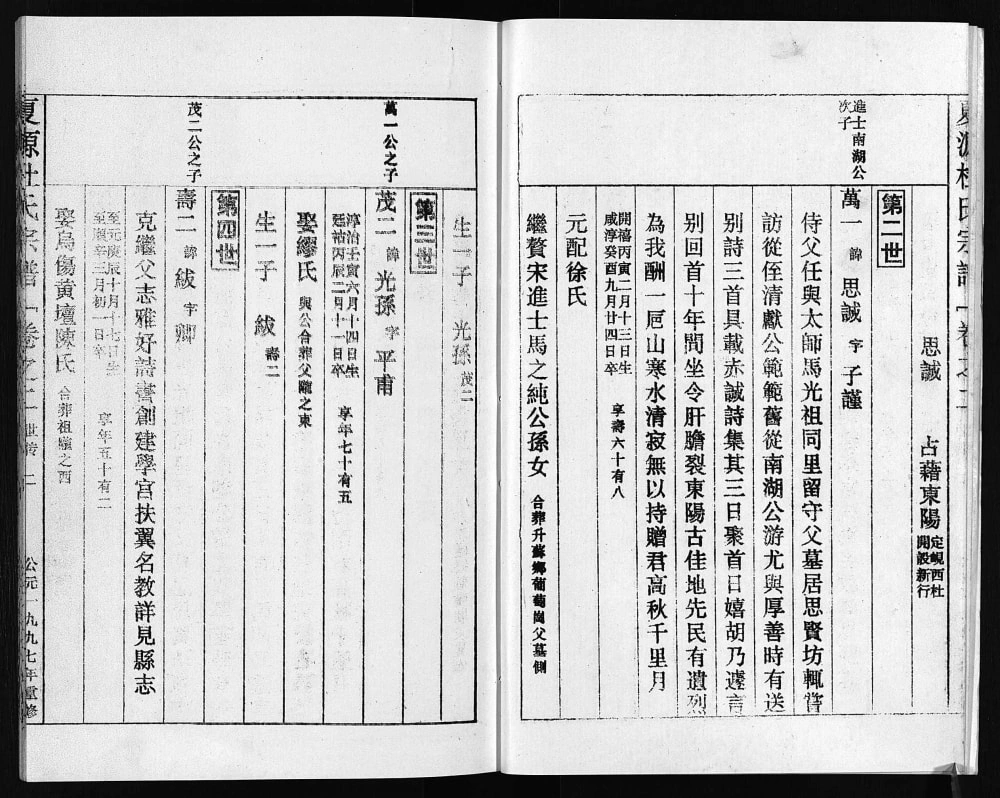 思誠 占藉東陽 定峴西杜
開設新行
第二世
進士南湖公
次子
萬一 諱 思誠 字 子謹
侍父任與太師馬光祖同里留守父墓居思賢坊輒嘗
訪從侄清獻公範範舊從南湖公游尤與厚善時有送
别詩三首具載赤誠詩集其三日聚首日嬉胡乃遽言
别回首十年間坐令肝膽裂東陽古佳地先民有遺烈
為我酬一卮山寒水清寂無以持贈君高秋千里月
開禧丙寅二月十三日生
咸淳癸酉九月廿四日卒
享壽六十有八
元配徐氏
繼贅宋進士馬之純公孫女 合葬升蘇鄉葡萄崗父墓側
生一子 光孫 茂二
第三世
萬一公之子
茂二 諱 光孫 字 平甫
淳祐壬寅六月十四日生
延祐丙辰二月十一日卒
享年七十有五
娶繆氏 與公合葬父隴之東
生一子 紱 壽二
第四世
茂二公之子
壽二 諱 紱 字 卿
克繼父志雅好詩書創建學宮扶翼名教詳見縣志
至元庚辰十月十七日生
至順辛卒三月初一日卒
享年五十有二
娶烏傷黄壇陳氏 合葬祖壠之西
夏源杜氏宗譜 卷之二 世传 二 公元一九九七年重修